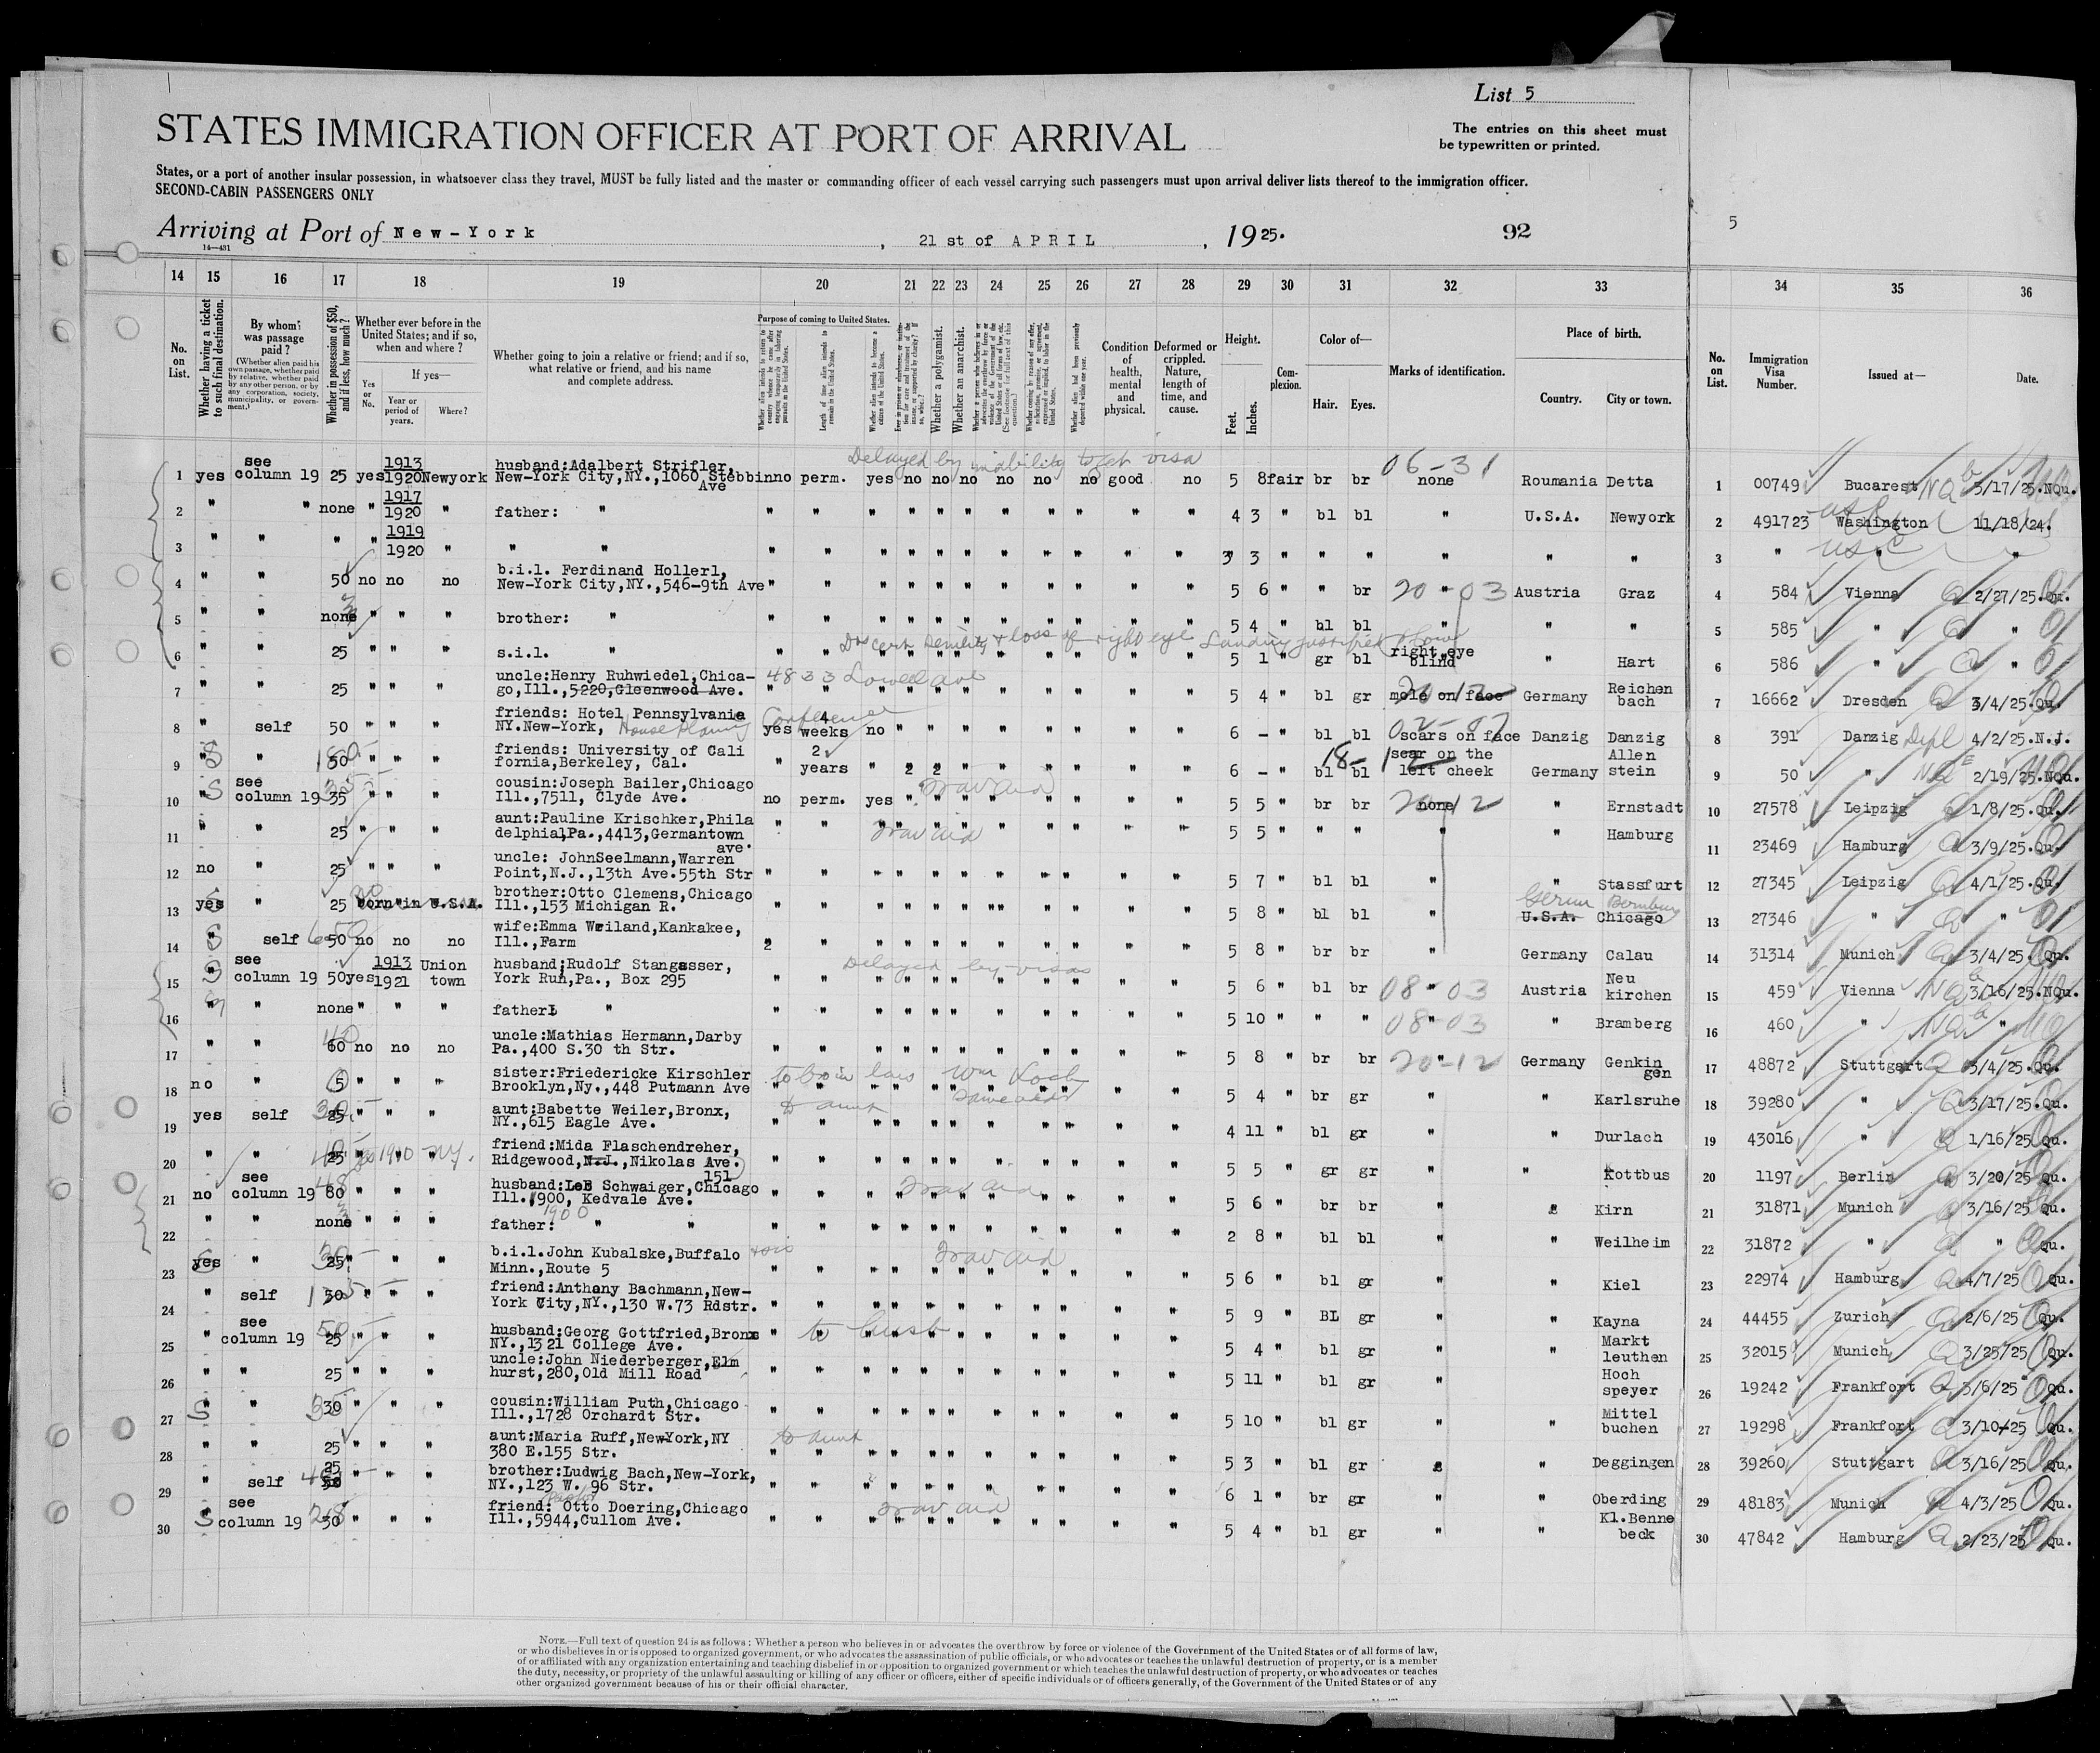 List 5
The entries on this sheet must
be typewritten or printed.
STATES IMMIGRATION OFFICER AT PORT OF ARRIVAL
States, or a port of another insular possession, in whatsoever class they travel, MUST be fully listed and the master or commanding officer of each vessel carrying such passengers must upon arrival deliver lists thereof to the immigration officer.
SECOND-CABIN PASSENGERS ONLY
Arriving at Port of New-York, 21 st of APRIL, 1925. 92 5
14—431
14 15 16 17 18 19 20 21 22 23 24 25 26 27 28 29 30 31 32 33 34 35 36
No. on List.
Whether having a ticket to such final destination.
By whom was passage paid?
(Whether alien paid his own passage, whether paid by relative, whether paid by any other person, or by any corporation, society, municipality, or government.)
Whether in possession of $50, and if less, how much?
Whether ever before in the United States; and if so, when and where?
If yes—
Yes or No.
Year or period of years.
Where?
Whether going to join a relative or friend; and if so, what relative or friend, and his name and complete address.
Purpose of coming to United States.
Length of time alien intends to remain in the United States.
Whether alien intends to become a citizen of the United States.
Whether a polygamist.
Whether an anarchist.
Condition of health, mental and physical.
Deformed or crippled. Nature, length of time, and cause.
Height.
Feet. Inches.
Complexion.
Color of—
Hair. Eyes.
Marks of identification.
Place of birth.
Country. City or town.
No. on List.
Immigration Visa Number.
Issued at—
Date.
Delayed by inability to get visa 06-31
1 yes see column 19 25 yes 1913 1920 Newyork husband:Adalbert Strifler, New-York City,NY.,1060 Stebbin Ave no perm. yes no no no no no no good no 5 8 fair br br none Roumania Detta 1 00749 Bucarest 3/17/25.NQu.
2 " " none " 1917 1920 " father: " " " " " " " " " " " " 4 3 " bl bl " U.S.A. Newyork 2 491723 Washington 11/18/24.
3 " " " " 1919 1920 " " " " " " " " " " " " " " 3 3 " " " " " " 3 " USC "
4 " " 50 no no no b.i.l. Ferdinand Hollerl, New-York City,NY.,546-9th Ave " " " " " " " " " " " 5 6 " " br 20-03 Austria Graz 4 584 Vienna 2/27/25.Qu.
5 " " none " " " brother: " 5 4 " bl bl " " " 5 585 " "
6 " " 25 " " " s.i.l. " " " " " " " " " " " " 5 1 " gr bl right eye blind " Hart 6 586 " "
loss of right eye Landing justified
7 " " 25 " " " uncle:Henry Ruhwiedel,Chica- go,Ill.,5220,Gleenwood Ave. 4833 Lowell ave " " " " " " " " " " " 5 4 " bl gr mole on face Germany Reichen bach 7 16662 Dresden 3/4/25.Qu.
8 " self 50 " " " friends: Hotel Pennsylvania NY.New-York, Conference yes 4 weeks no " " " " " " " " 6 - " bl bl scars on face Danzig Danzig 8 391 Danzig Dipl 4/2/25.N.J.
9 " " 50 " " " friends: University of Cali fornia,Berkeley, Cal. " 2 years " 2 2 " " " " " " 6 - " bl bl scar on the left cheek Germany Allen stein 9 50 " 2/19/25.NQu.
10 " see column 19 35 " " " cousin:Joseph Bailer,Chicago Ill.,7511, Clyde Ave. no perm. yes " " " " " " " " 5 5 " br br none " Ernstadt 10 27578 Leipzig 1/8/25.Qu.
Trav aid 20-12
11 " " 25 " " " aunt:Pauline Krischker,Phila delphia,Pa.,4413,Germantown ave. Trav aid " " " " " " " " " " " 5 5 " " " " " Hamburg 11 23469 Hamburg 3/9/25.Qu.
12 no " 25 " " " uncle: JohnSeelmann,Warren Point,N.J.,13th Ave.55th Str " " " " " " " " " " " 5 7 " bl bl " " Stassfurt 12 27345 Leipzig 4/1/25.Qu.
13 yes " 25 born in U.S.A. brother:Otto Clemens,Chicago Ill.,153 Michigan R. " " " " " " " " " " " 5 8 " bl bl " U.S.A. Chicago Germ Bernburg 13 27346 " "
14 " self 50 no no no wife:Emma Weiland,Kankakee, Ill.,Farm 2 " " " " " " " " " " 5 8 " br br " Germany Calau 14 31314 Munich 3/4/25.Qu.
15 " see column 19 50 yes 1913 1921 Union town husband:Rudolf Stangasser, York Run,Pa., Box 295 Delayed by visas " " " " " " " " " " " 5 6 " bl br 08-03 Austria Neu kirchen 15 459 Vienna 3/16/25.NQu.
16 " " none " " " father: " " " " " " " " " " " " 5 10 " " " 08-03 " Bramberg 16 460 " "
17 " " 60 no no no uncle:Mathias Hermann,Darby Pa.,400 S.30 th Str. " " " " " " " " " " " 5 8 " br br 20-12 Germany Genkin gen 17 48872 Stuttgart 3/4/25.Qu.
18 no " 5 " " " sister:Friedericke Kirschler Brooklyn,Ny.,448 Putmann Ave to bro in law Wm Koch " " " " " " " " " " " 5 4 " br gr " " Karlsruhe 18 39280 " 3/17/25.Qu.
19 yes self 25 " " " aunt:Babette Weiler,Bronx, NY.,615 Eagle Ave. to aunt " " " " " " " " " " " 4 11 " bl gr " " Durlach 19 43016 " 1/16/25 Qu.
20 " " 25 1910 NY. friend:Mida Flaschendreher, Ridgewood,N.J.,Nikolas Ave. 151 " " " " " " " " " " " 5 5 " gr gr " " Kottbus 20 1197 Berlin 3/20/25.Qu.
21 no see column 19 80 " " " husband:Leo Schwaiger,Chicago Ill.,1900, Kedvale Ave. 1900 Trav aid " " " " " " " " " " " 5 6 " br br " " Kirn 21 31871 Munich 3/16/25 Qu.
22 " " none " " " father: " " " " " " " " " " " " " 2 8 " bl bl " " Weilheim 22 31872 " " Qu.
23 yes " 25 " " " b.i.l.John Kubalske,Buffalo Minn.,Route 5 Trav aid " " " " " " " " " " " 5 6 " bl gr " " Kiel 23 22974 Hamburg 4/7/25 Qu.
24 " self 50 " " " friend:Anthony Bachmann,New- York City,NY.,130 W.73 Rdstr. " " " " " " " " " " " 5 9 " BL gr " " Kayna 24 44455 Zurich 2/6/25 Qu.
25 " see column 19 25 " " " husband:Georg Gottfried,Bronx NY.,1321 College Ave. to husb " " " " " " " " " " " 5 4 " bl gr " " Markt leuthen 25 32015 Munich 3/25/25 Qu.
26 " " 25 " " " uncle:John Niederberger,Elm hurst,280,Old Mill Road " " " " " " " " " " " 5 11 " bl gr " " Hoch speyer 26 19242 Frankfort 3/6/25 Qu.
27 " " 30 " " " cousin:William Puth,Chicago Ill.,1728 Orchardt Str. " " " " " " " " " " " 5 10 " bl gr " " Mittel buchen 27 19298 Frankfort 3/10/25 Qu.
28 " " 25 " " " aunt:Maria Ruff,New-York,NY 380 E.155 Str. to aunt " " " " " " " " " " " 5 3 " bl gr " " Deggingen 28 39260 Stuttgart 3/16/25 Qu.
29 " self 25 " " " brother:Ludwig Bach,New-York, NY.,123 W. 96 Str. " " " " " " " " " " " 6 1 " br gr " " Oberding 29 48183 Munich 4/3/25 Qu.
30 " see column 19 30 " " " friend: Otto Doering,Chicago Ill.,5944,Cullom Ave. Trav aid " " " " " " " " " " " 5 4 " bl gr " " Kl.Benne beck 30 47842 Hamburg 2/23/25 Qu.
NOTE.—Full text of question 24 is as follows: Whether a person who believes in or advocates the overthrow by force or violence of the Government of the United States or of all forms of law,
or who disbelieves in or is opposed to organized government, or who advocates the assassination of public officials, or who advocates or teaches the unlawful destruction of property, or is a member
of or affiliated with any organization entertaining and teaching disbelief in or opposition to organized government or which teaches the unlawful destruction of property, or who advocates or teaches
the duty, necessity, or propriety of the unlawful assaulting or killing of any officer or officers, either of specific individuals or of officers generally, of the Government of the United States or of any
other organized government because of his or their official character.